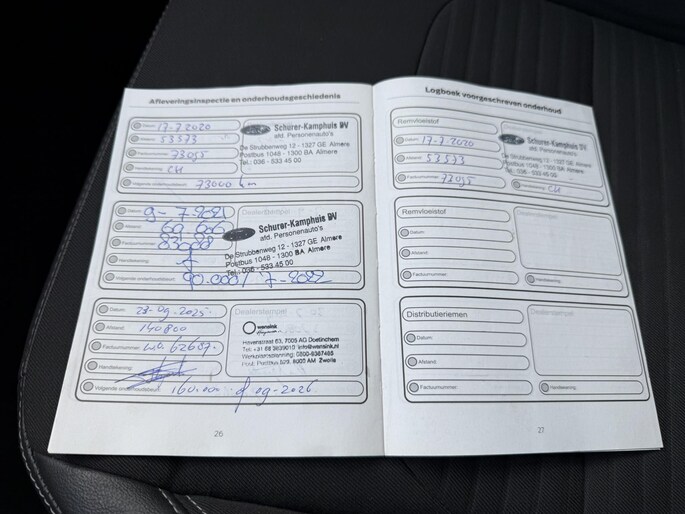 Afleveringsinspectie en onderhoudsgeschiedenis
Datum: 17-7-2020
Afstand: 53573
Factuurnummer: 73055
Handtekening: CH
Volgende onderhoudsbeurt: 73000 km
Schürer-Kamphuis BV
afd. Personenauto's
De Strubbenweg 12 - 1327 GE Almere
Postbus 1048 - 1300 BA Almere
Tel.: 036 - 533 45 00
Datum: 9-7-2021
Afstand:
Factuurnummer:
Handtekening:
Volgende onderhoudsbeurt: 90.000 / 7-2022
Dealerstempel
Schürer-Kamphuis BV
afd. Personenauto's
De Strubbenweg 12 - 1327 GE Almere
Postbus 1048 - 1300 BA Almere
Tel.: 036 - 533 45 00
Datum: 23-09-2025.
Afstand: 140800
Factuurnummer:
Handtekening:
Volgende onderhoudsbeurt: 160.000 of 09-2026
Dealerstempel
wensink
Havenstraat 63, 7005 AG Doetinchem
info@wensink.nl
Werkplaatsplanning: 0800-9367465
8000 AM Zwolle
26
Logboek voorgeschreven onderhoud
Remvloeistof
Datum: 17-7-2020
Afstand: 53573
Factuurnummer: 73055
Handtekening: CH
Schürer-Kamphuis BV
afd. Personenauto's
De Strubbenweg 12 - 1327 GE Almere
Postbus 1048 - 1300 BA Almere
Tel.: 036 - 533 45 00
Remvloeistof
Dealerstempel
Datum:
Afstand:
Factuurnummer:
Handtekening:
Distributieriemen
Dealerstempel
Datum:
Afstand:
Factuurnummer:
Handtekening:
27